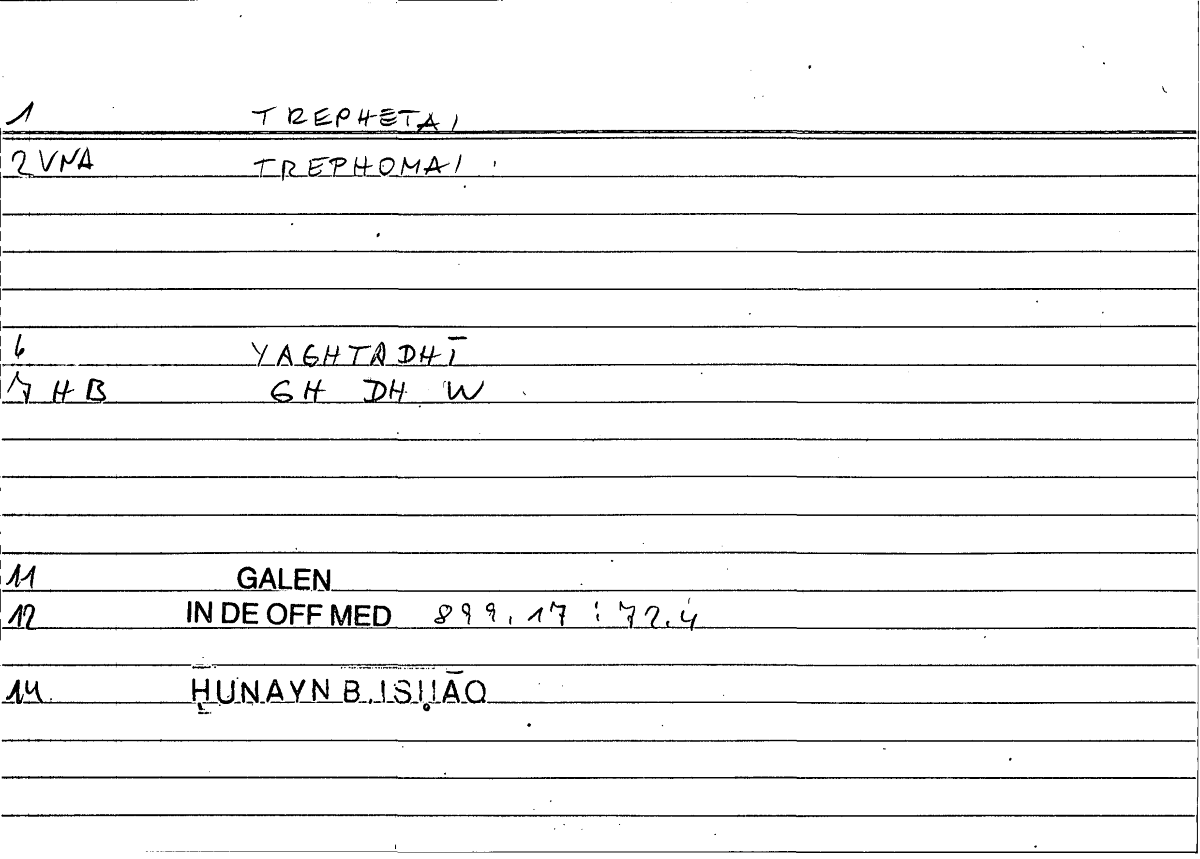 1 TREPHETAI
2 VNA TREPHOMAI
6 YAGHTADHĪ
7 HB GH DH W
11 GALEN
12 IN DE OFF MED 899.17 : 72.4
14 ḤUNAYN B. ISḤĀQ